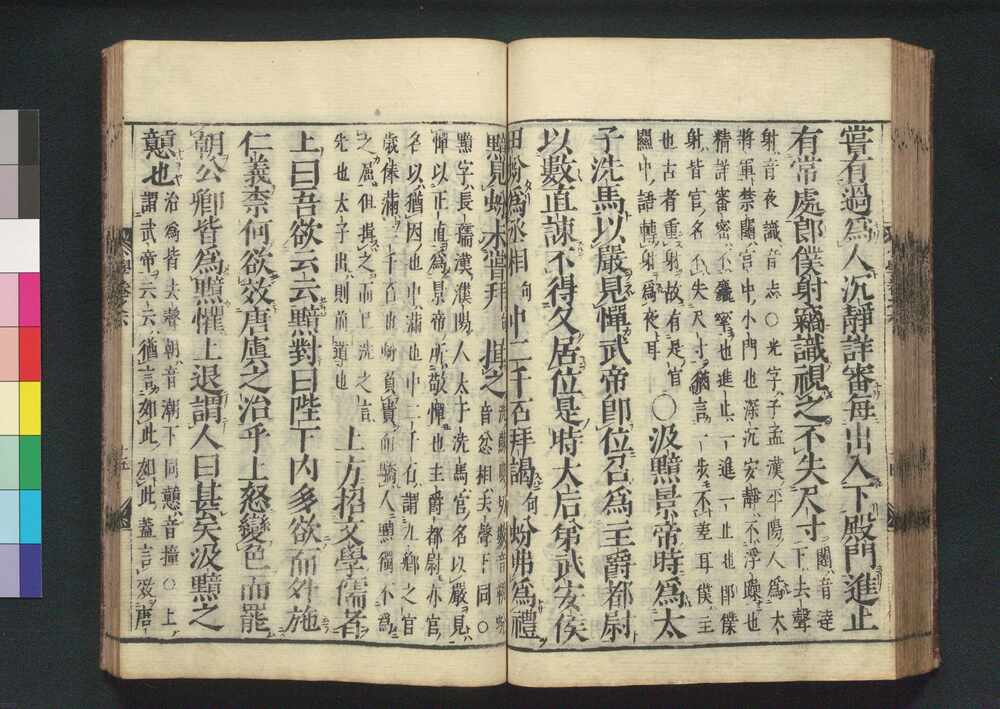 嘗有過爲人沉靜詳審每出入下殿門進止
有常處郎僕射竊識視之不失尺寸
闥音達
下去聲
射音夜識音志○光字子孟漢平陽人爲大
將軍禁闥宮中小門也深沉安靜不浮躁也
精詳審密不麤率也進止一進一止也郎僕
射皆官名不失尺寸猶言一步不差耳僕主
也古者重射故有是官
關中語轉射爲夜耳
○汲黯景帝時爲太
子洗馬以嚴見憚武帝卽位召爲主爵都尉
以數直諫不得久居位是時太后弟武安侯
田蚡爲丞相句中二千石拜謁句蚡弗爲禮
黯見蚡未嘗拜揖之
音忿相去聲下同○
黯字長孺漢濮陽人太子洗馬官名以嚴見
憚以正直爲景帝所敬憚也主爵都尉亦官
名以猶因也中滿也中二千石謂九卿之官
歲俸滿二千石也蚡負貴而驕人黯獨不爲
之屈但揖之而已洗之言
先也太子出則前道也
上方招文學儒者
上曰吾欲云云黯對曰陛下內多欲而外施
仁義柰何欲效唐虞之治乎上怒變色而罷
朝公卿皆爲黯懼上退謂人曰甚矣汲黯之
戇也
治爲皆去聲朝音潮下同戇音撞○上
謂武帝云云猶言如此如此蓋言效唐